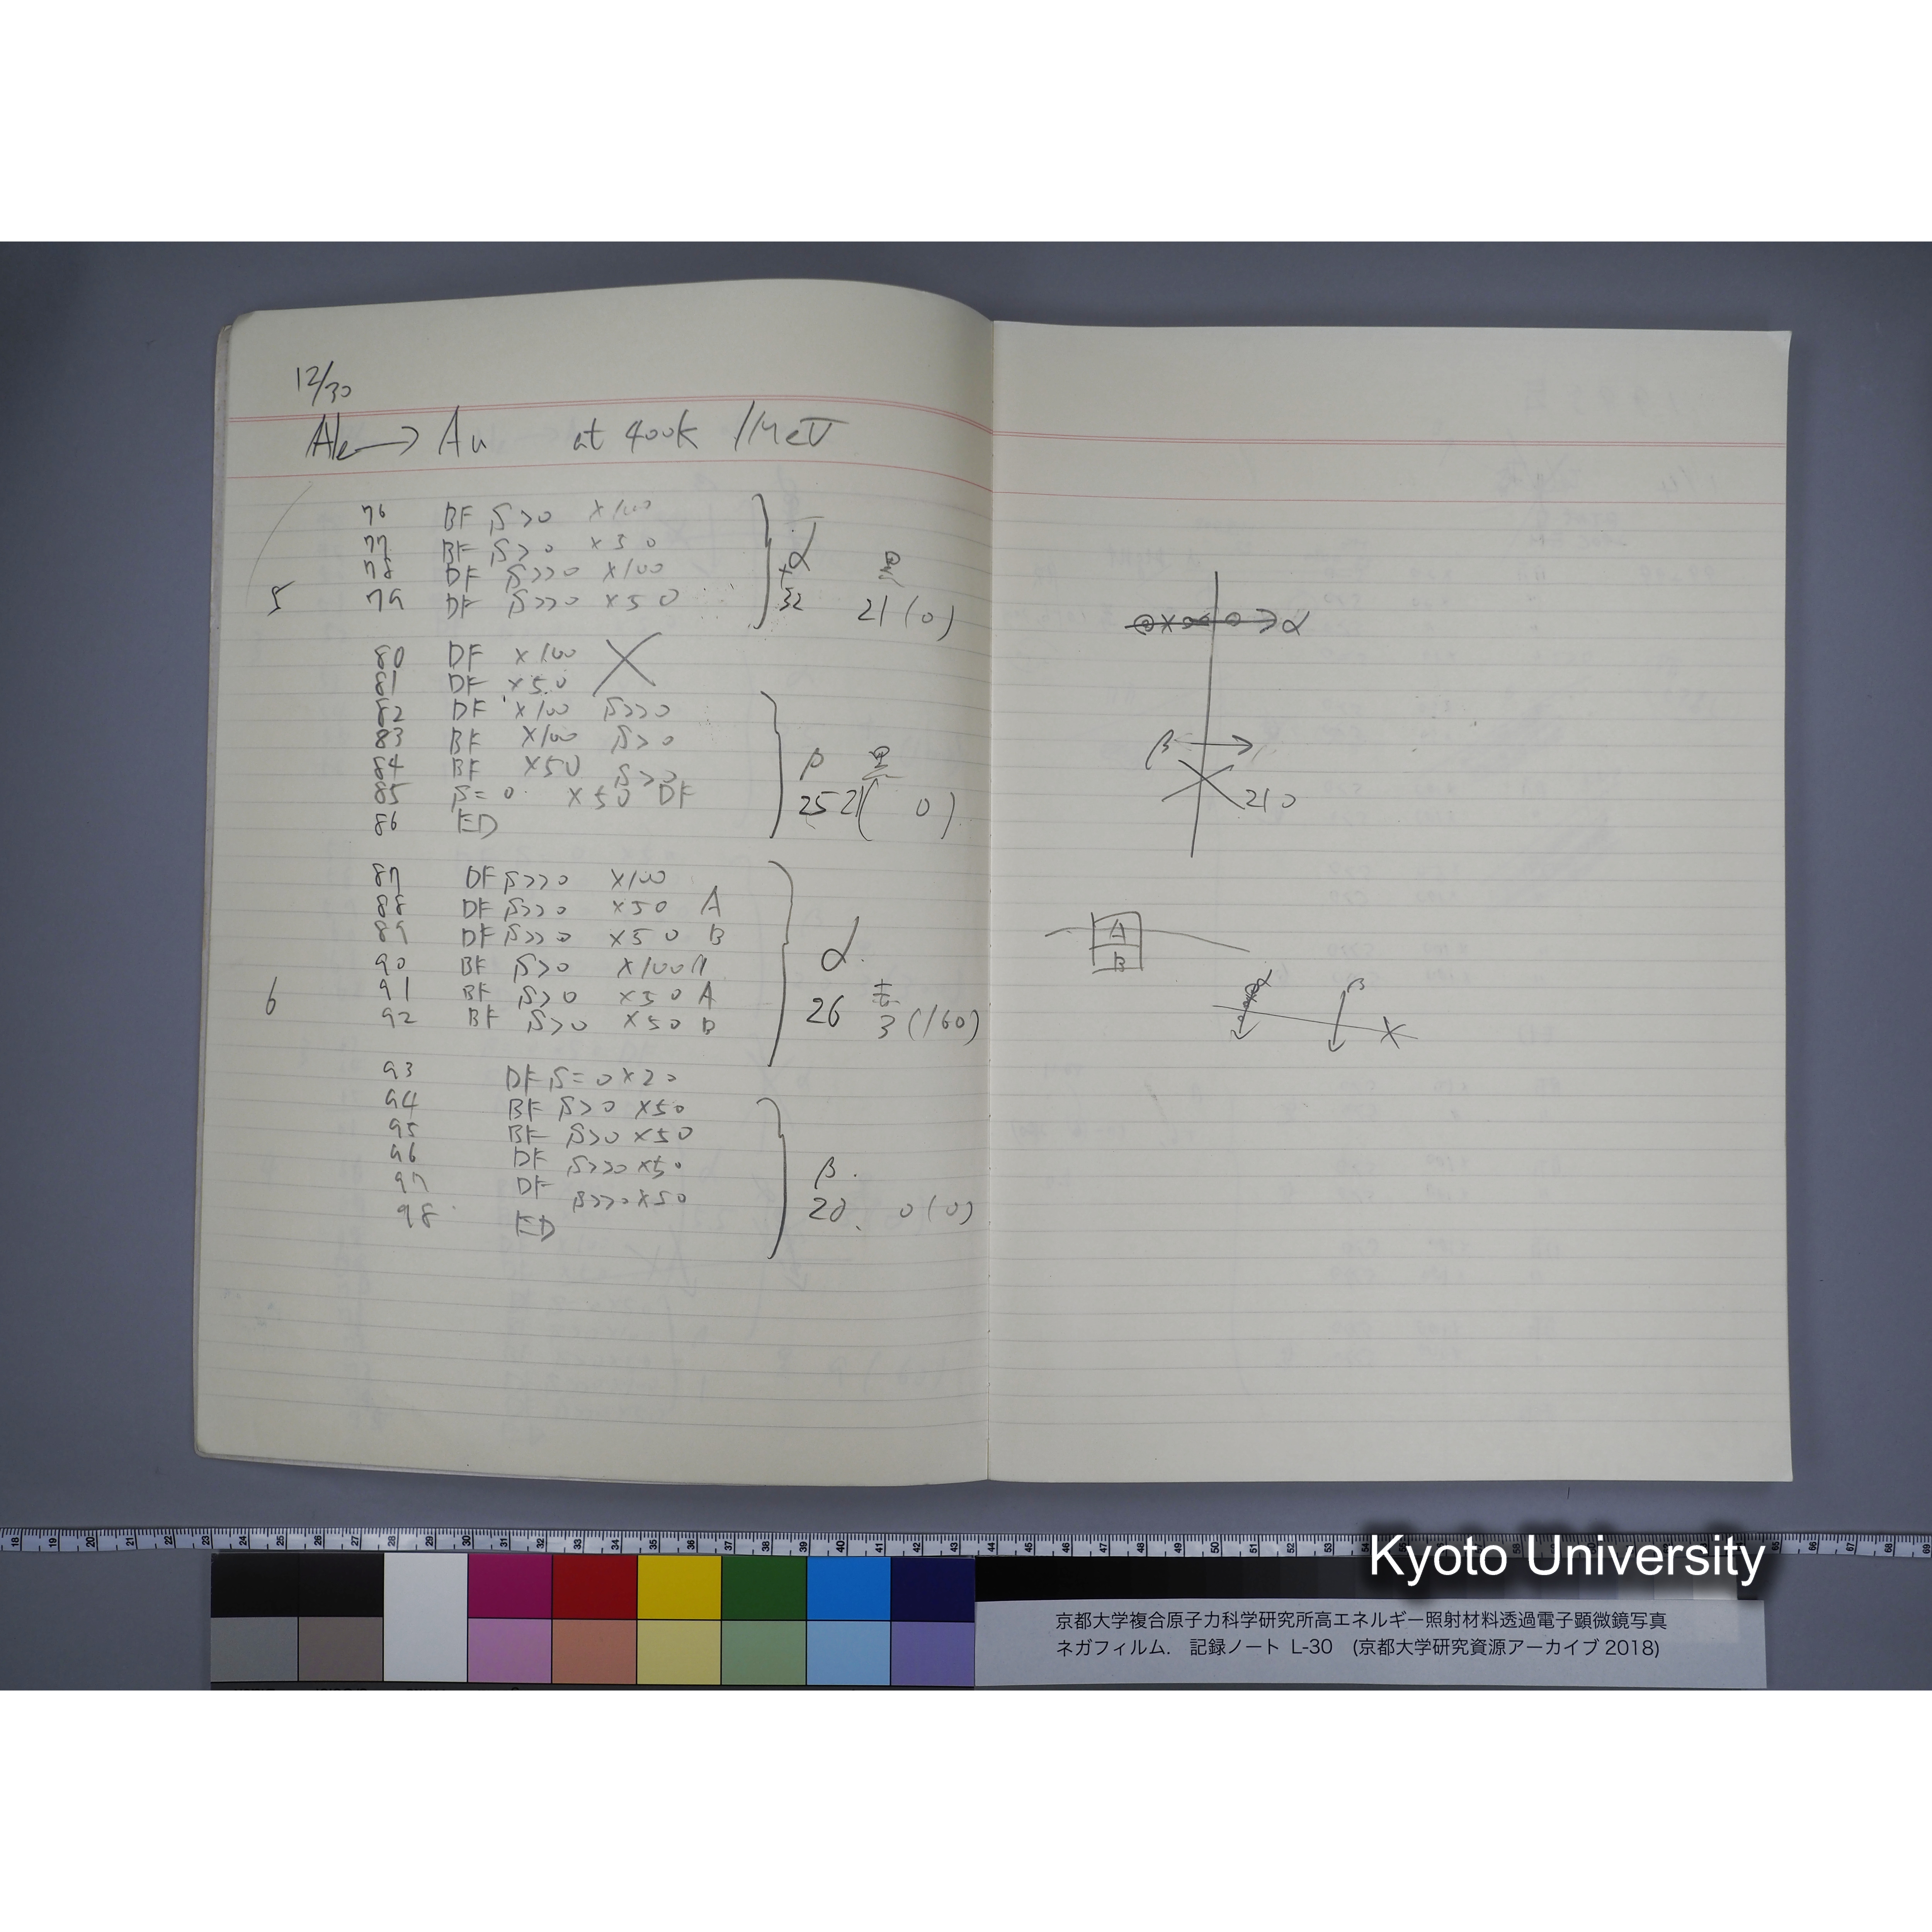 12/30
→ Au at 400K 1MeV
76 BF S>0 ×100
77 BF S>0 ×50
78 DF S>>0 ×100
5 79 DF S>>0 ×50
α
32 21(0)
80 DF ×100
81 DF ×50
82 DF ×100 S>>0
83 BF ×100 S>0
84 BF ×50 S>0
85 S=0 ×50 DF
86 ED
β
25 21( 0)
87 DF S>>0 ×100
88 DF S>>0 ×50 A
89 DF S>>0 ×50 B
90 BF S>0 ×100
6 91 BF S>0 ×50 A
92 BF S>0 ×50 B
α.
26 3(160)
93 DF S=0 ×20
94 BF S>0 ×50
95 BF S>0 ×50
96 DF S>>0 ×50
97 DF S>>0 ×50
98 ED
β.
20. 0(0)
α
β
210
A
B
α
β
Kyoto University
京都大学複合原子力科学研究所高エネルギー照射材料透過電子顕微鏡写真
ネガフィルム. 記録ノート L-30 (京都大学研究資源アーカイブ 2018)